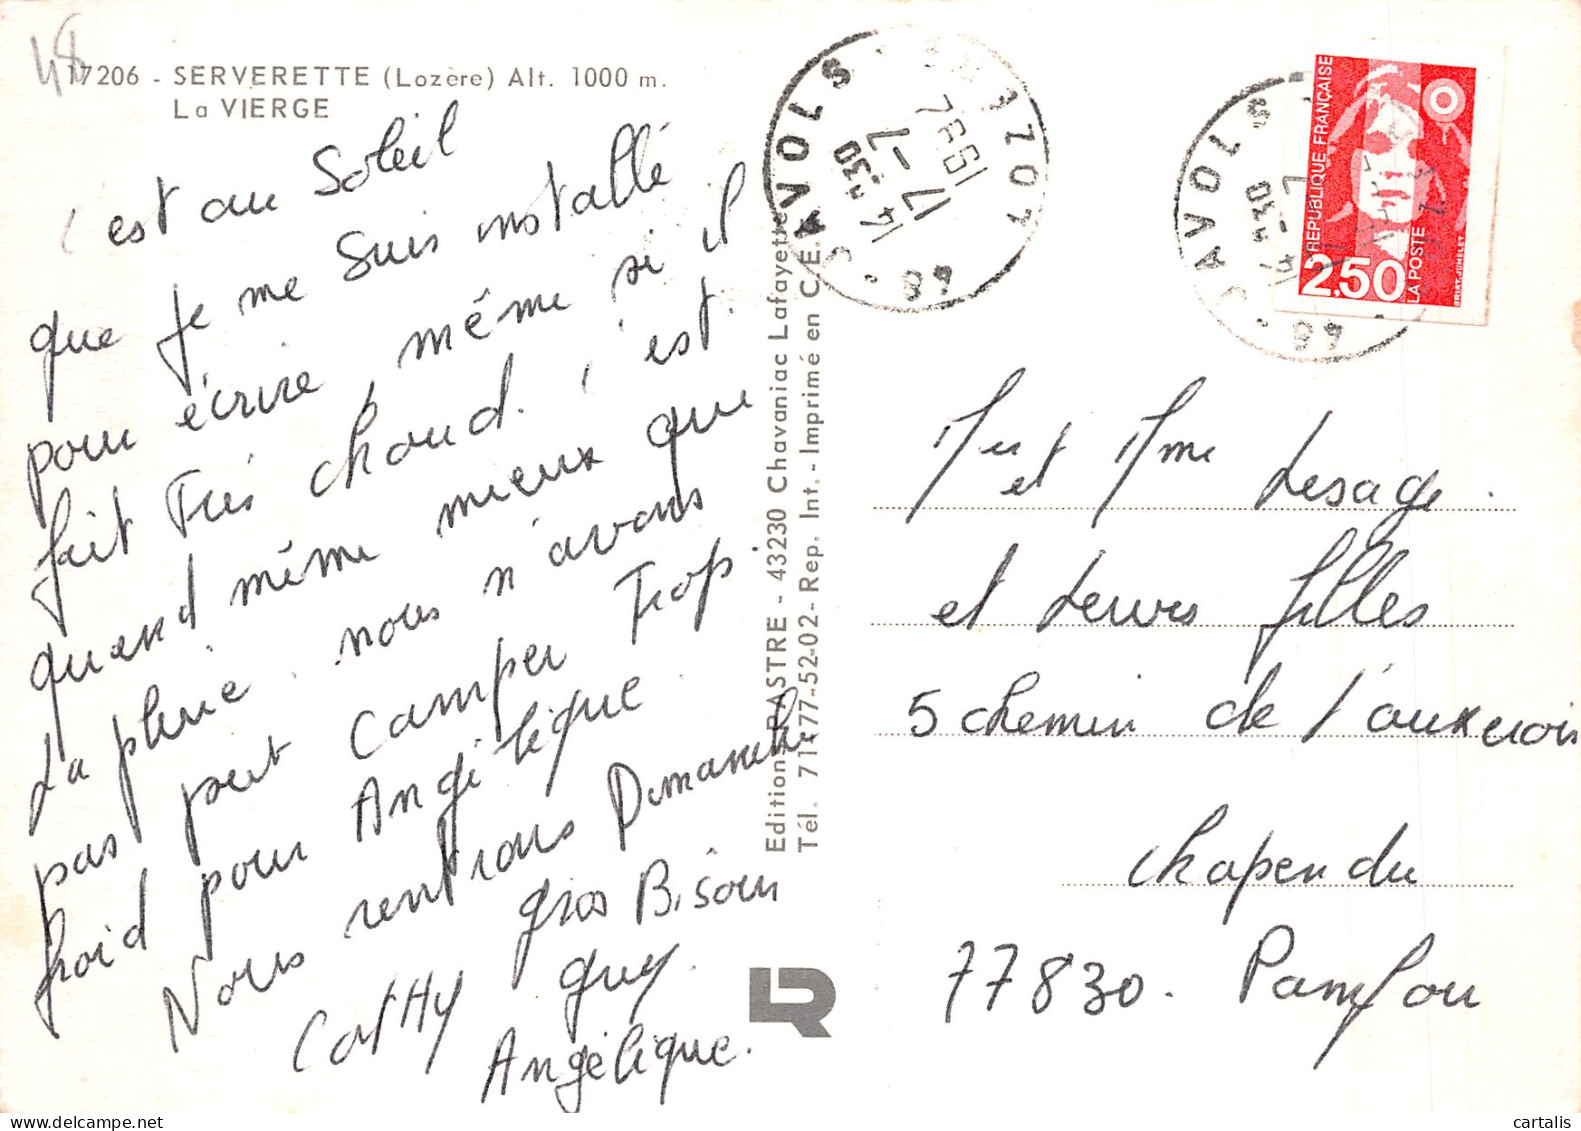 48
17206 - SERVERETTE (Lozère) Alt. 1000 m.
La VIERGE
c'est au Soleil
que je me suis installé
pour écrire même si il
fait Très chaud. c'est
quand même mieux que
La pluie. nous n'avons
pas peut camper Trop
froid pour Angélique.
Nous rentrons Dimanche
gros Bisous
Cathy guy.
Angélique.
Editions PASTRE - 43230 Chavaniac Lafayette
Tél. 71-77-52-02 - Rep. Int. - Imprimé en C.E.E.
LR
JAVOLS
LOZERE
14 H 30
17 -7
48
JAVOLS
14 H 30
48
REPUBLIQUE FRANÇAISE
2,50
LA POSTE
BRIAT-JUMELET
Mr et Mme Lesage.
et Leurs filles
5 chemin de l'auxerrois
chapendu
77830. Pamfou
cartalis
www.delcampe.net